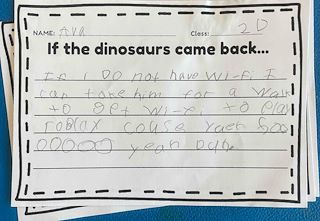 NAME: Ava Class: 2D
If the dinosaurs came back...
If I Do not have Wi-Fi I
can take him for a walk
to get Wi-Fi to play
roblax couse yaer Soo
00000 yeah